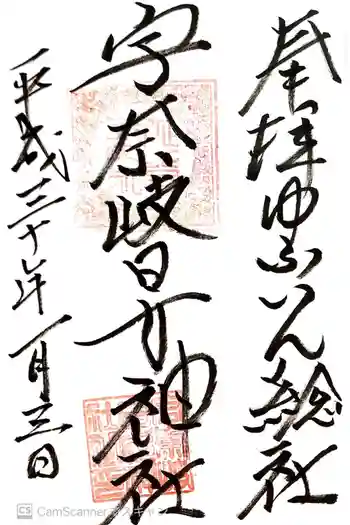 奉拝 ゆふいん総社
宇奈岐日女神社
平成三十年一月三日
CS CamScanner